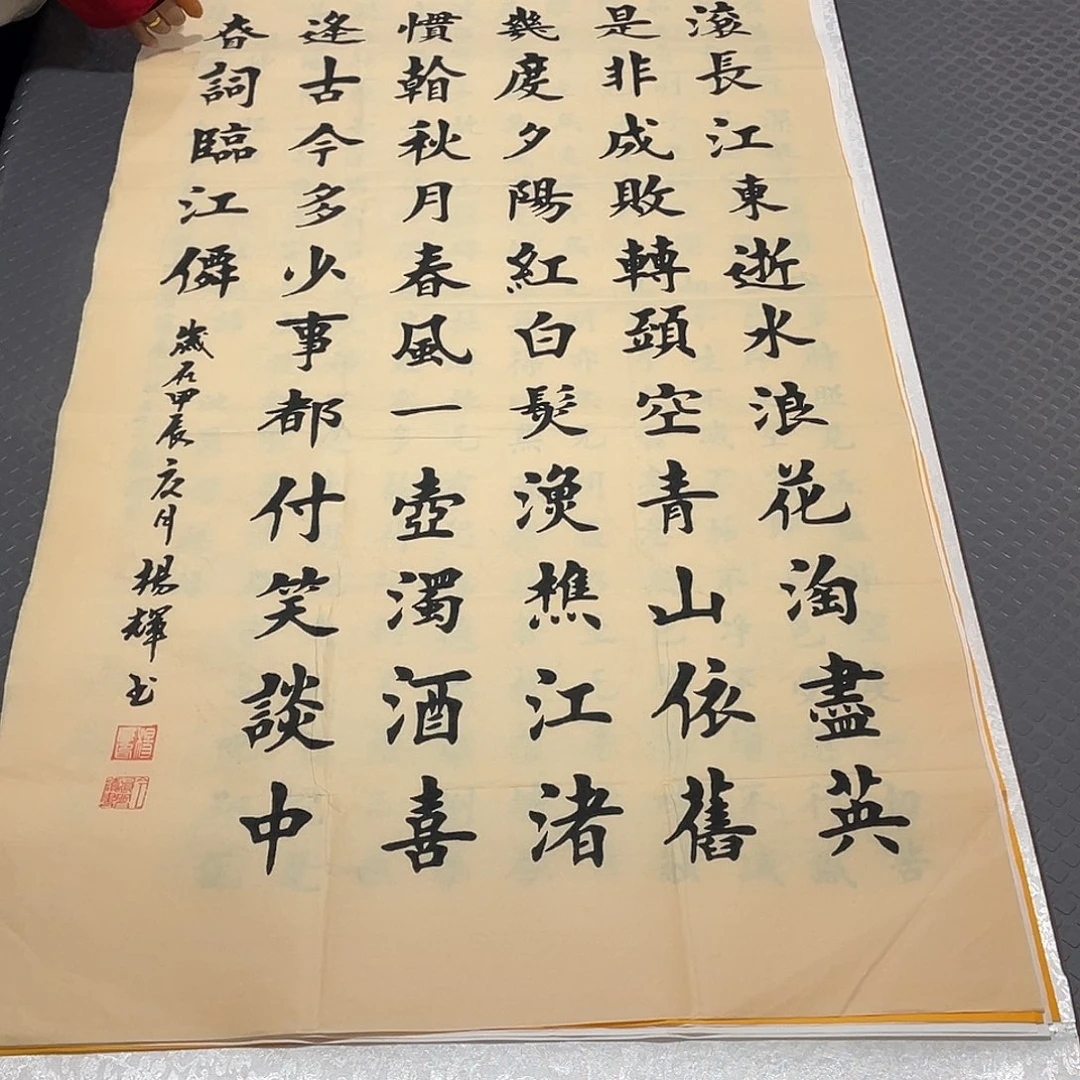 滾長江東逝水浪花淘盡英
是非成敗轉頭空青山依舊
幾度夕陽紅白髮漁樵江渚
慣看秋月春風一壺濁酒喜
逢古今多少事都付笑談中
昚詞臨江僊
歲在甲辰亥月楊輝书